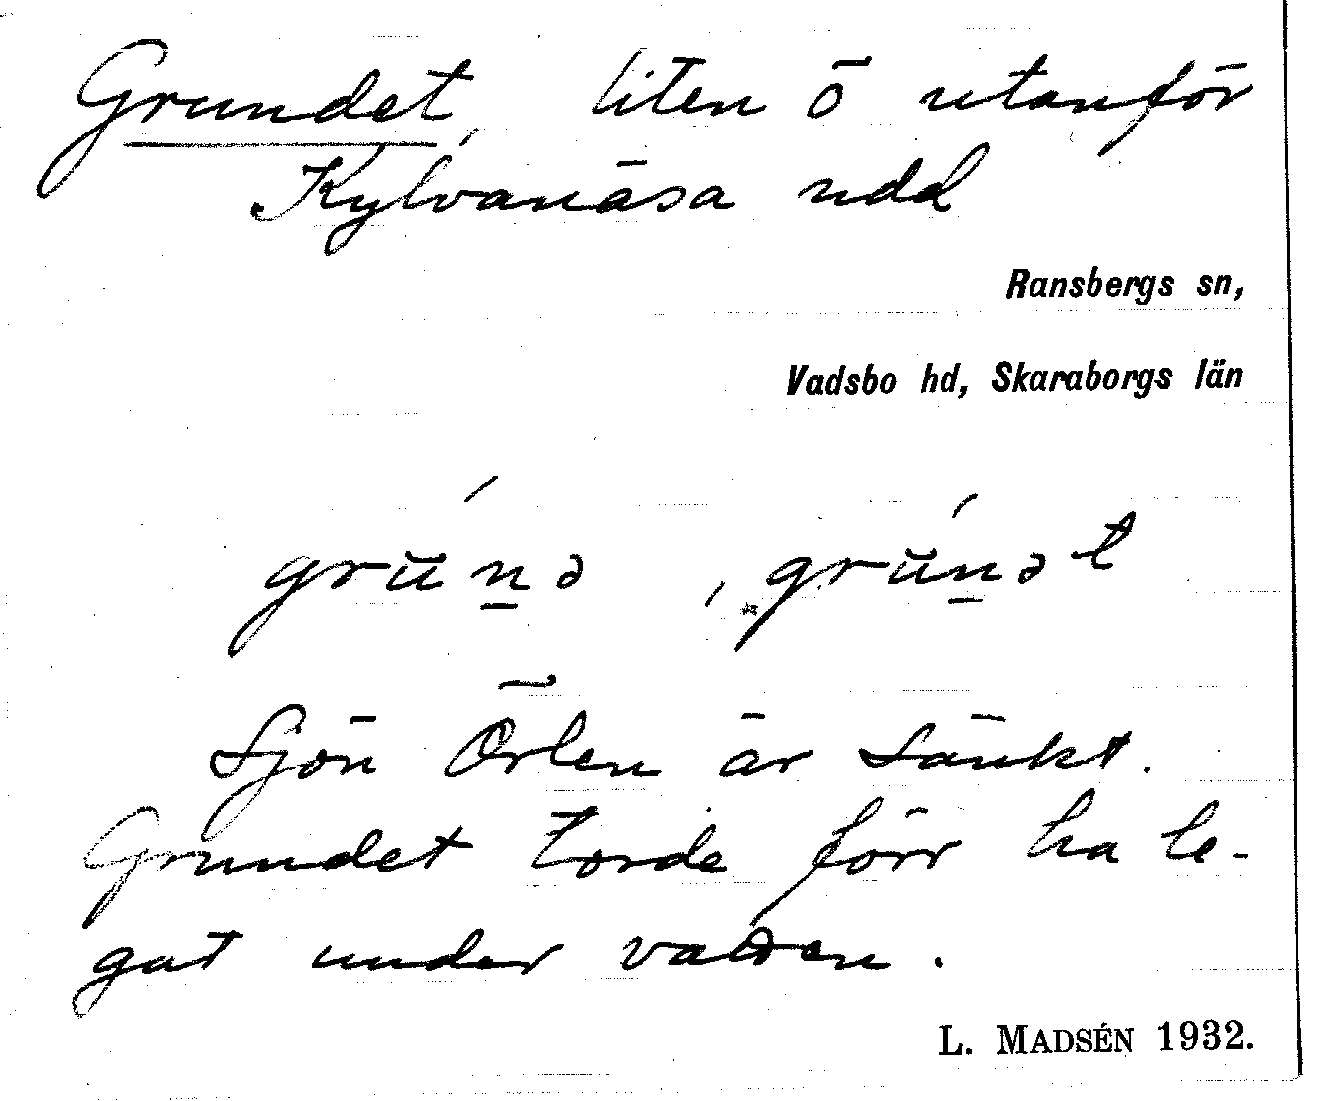 Grundet, liten ö utanför
Kylvanäsa udd
Ransbergs sn,
Vadsbo hd, Skaraborgs län
grŭ́n̲ə , grŭ́n̲ət
Sjön Örlen är sänkt.
Grundet torde förr ha le-
gat under
L. MADSÉN 1932.